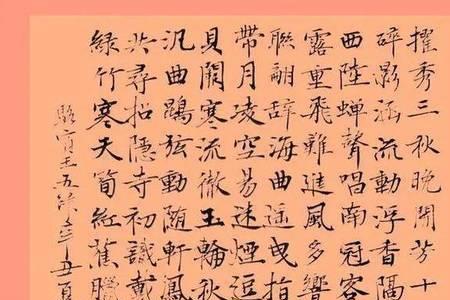 擢秀三秋晚開芳十
碎影涵流動浮香隔
西陸蟬聲唱南冠客
露重飛難進風多響
聯翩辭海曲遥曳指
帶月凌空易迷煙逗
貝闕寒流徹玉輪秋
汎曲鵾弦動随軒鳳
共尋招隱寺初識戴
綠竹寒天筍紅蕉臘
駱賓王五律辛丑夏